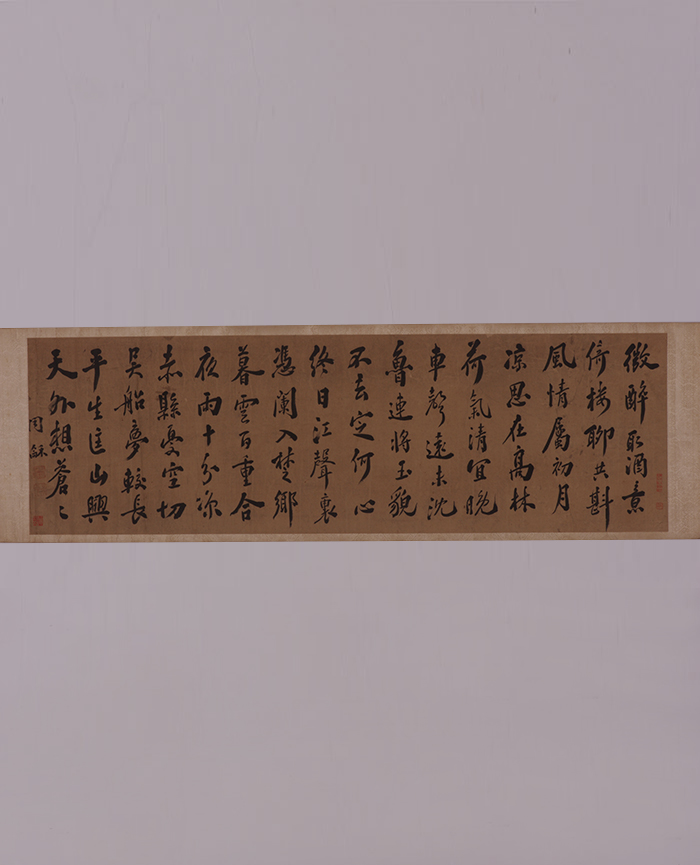 微醉取酒
倚楼聊共斟
風情屬初月
凉思在高林
荷氣清宜晚
車聲遠未沈
魯連將玉貌
不去定何心
終日江聲裏
憑闌入楚鄉
暮雲百重合
夜雨十分凉
赤縣憂空切
吳船夢較長
平生匡山興
天外想蒼〻
同龢